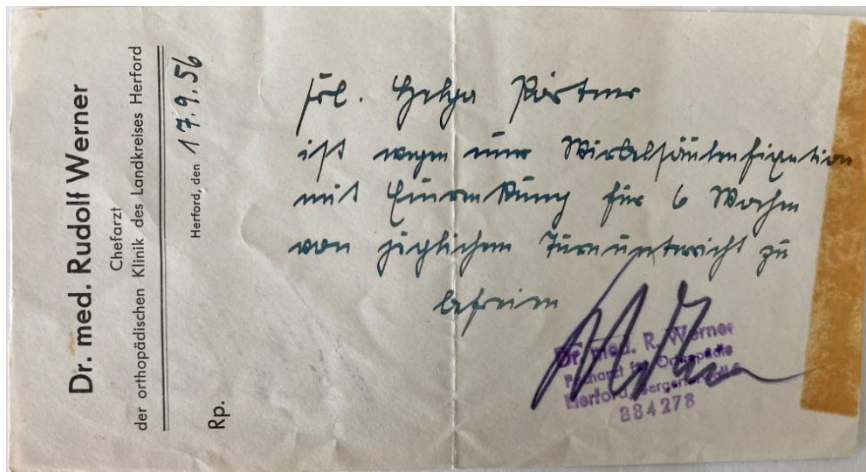 Dr. med. Rudolf Werner
Chefarzt
der orthopädischen Klinik des Landkreises Herford
Herford, den 17.9.56
Rp.
Frl. Helga Körtner
ist wegen einer Wirbelsäulenfixation
mit Einrenkung für 6 Wochen
von jeglichem Turnunterricht zu
befreien
Dr. med. R. Werner
Facharzt für Orthopädie
Herford,
884278